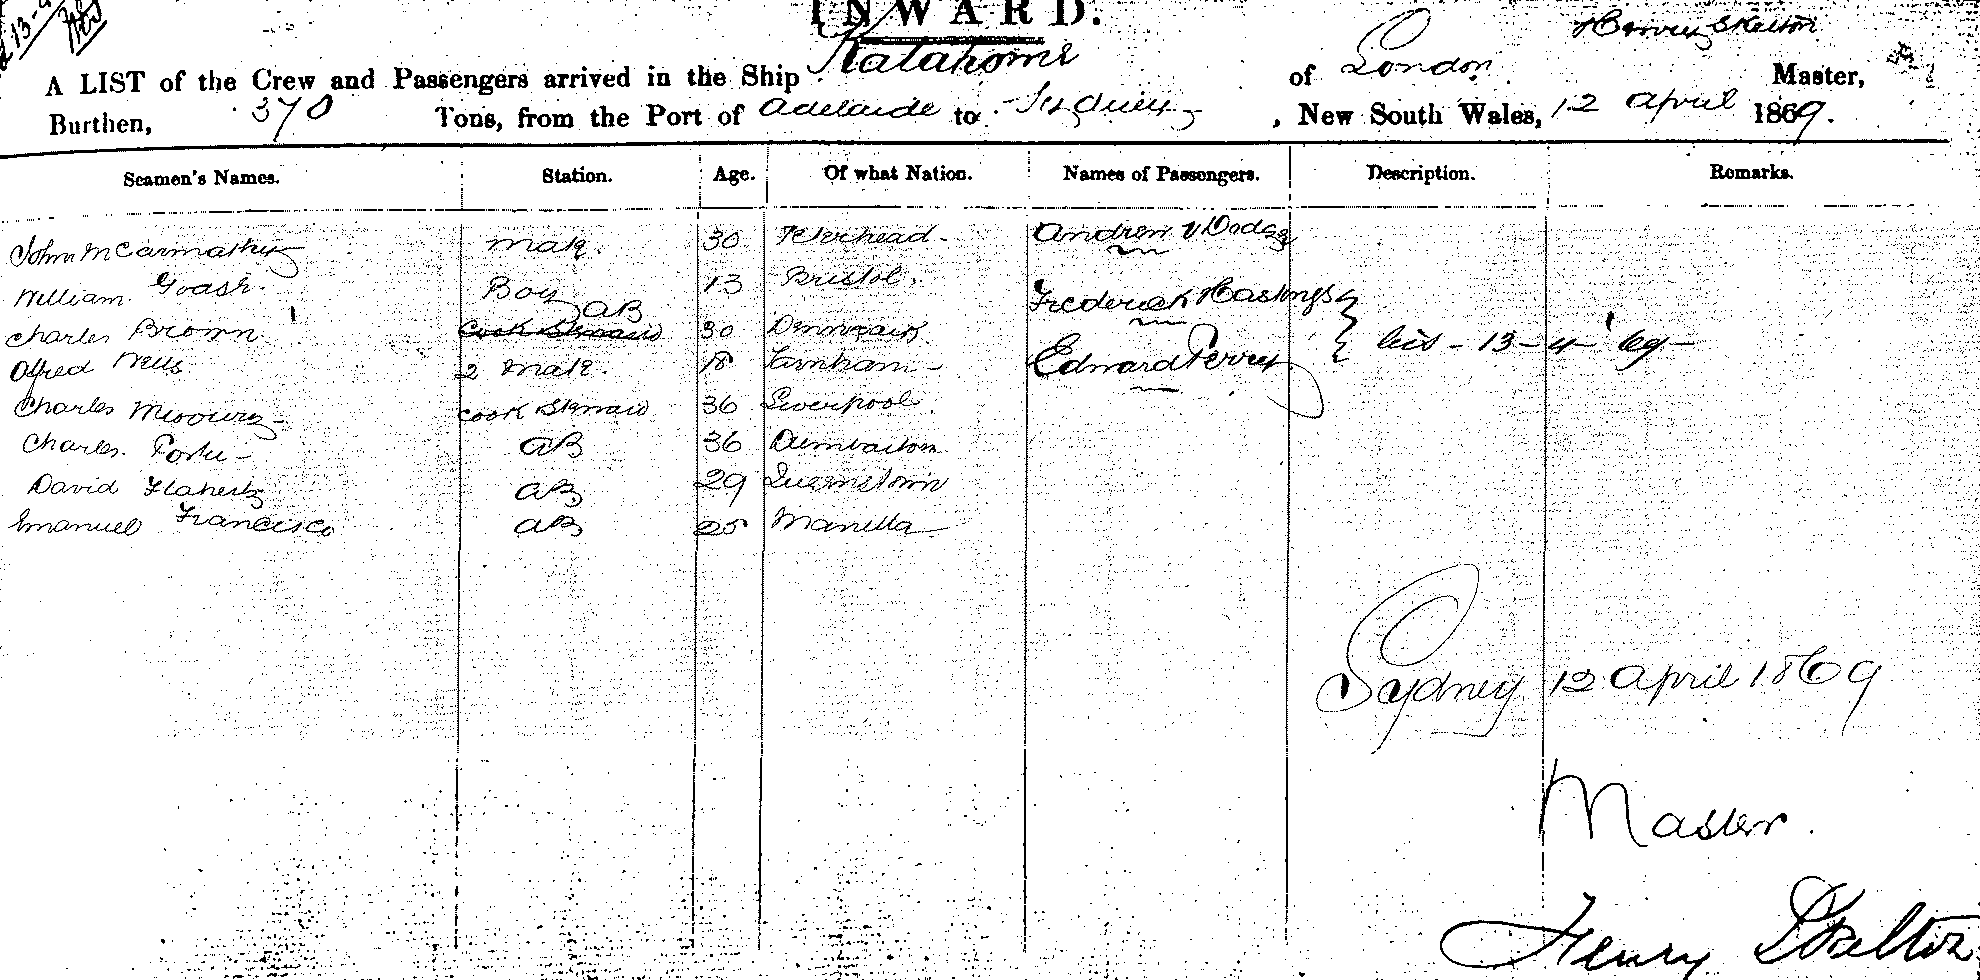 INWARD.
A LIST of the Crew and Passengers arrived in the Ship Katahome of London Henry Skelton Master,
Burthen, 370 Tons, from the Port of Adelaide to Sydney, New South Wales, 12 April 1869.
Seamen's Names. Station. Age. Of what Nation. Names of Passengers. Description. Remarks.
John McCarmathy Mate. 30 Andrew Dodds
William Boy 13 Bristol.
Frederick Hastings
Charles Brown Cook Steward AB 30 Denmark
Alfred Wells 2 Mate. 18 Farnham Edward Perrey 13-4-69
Charles Cook Steward 36 Liverpool
Charles Porter AB 36 Dumbarton
David Flaherty AB 29 Queenstown
Emanuel Francisco AB 25 Manilla
Sydney 12 April 1869
Master.
Henry Skelton